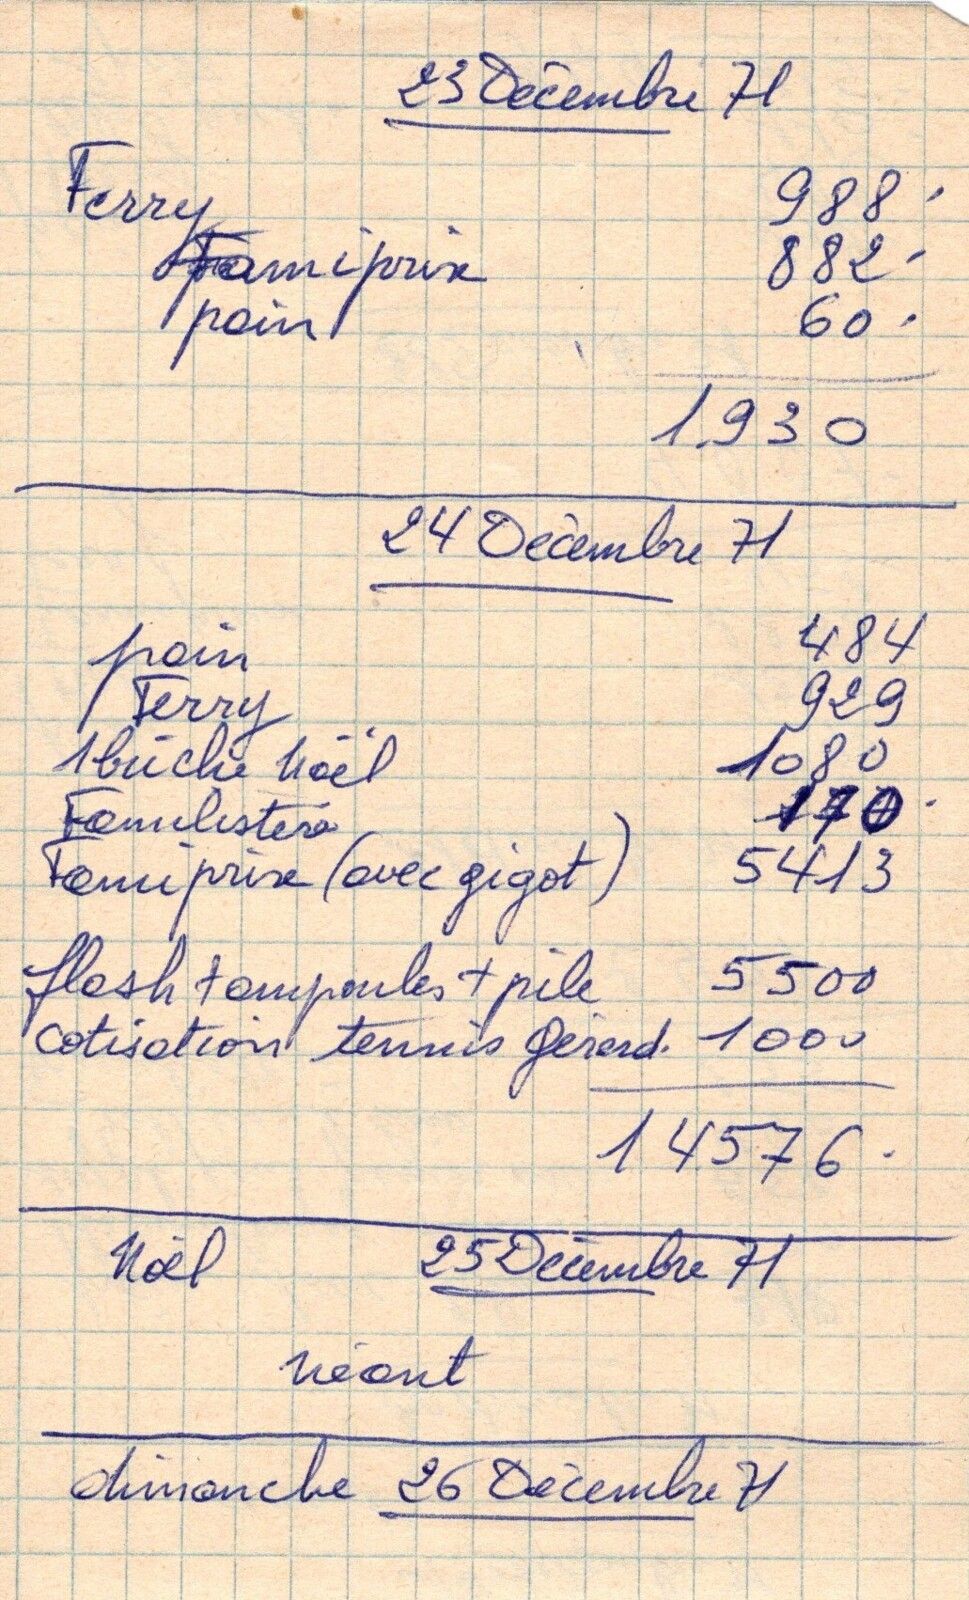 23 Décembre 71
Ferry 988.
Famiprix 882.
pain 60.
1.930
24 Décembre 71
pain 484
Ferry 929
1 bûche Noël 1080
Familistère 170.
Famiprix (avec gigot) 5413
flash + ampoules + pile 5500
cotisation tennis Gérard. 1000
14576.
Noël 25 Décembre 71
néant
dimanche 26 Décembre 71